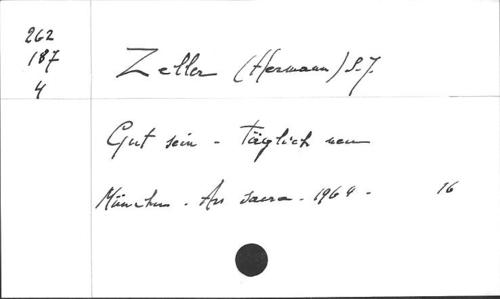 262
187
4
Zeller (Hermann) S.J.
Gut sein - Täglich neu
München - Ars sacra - 1969 - 16